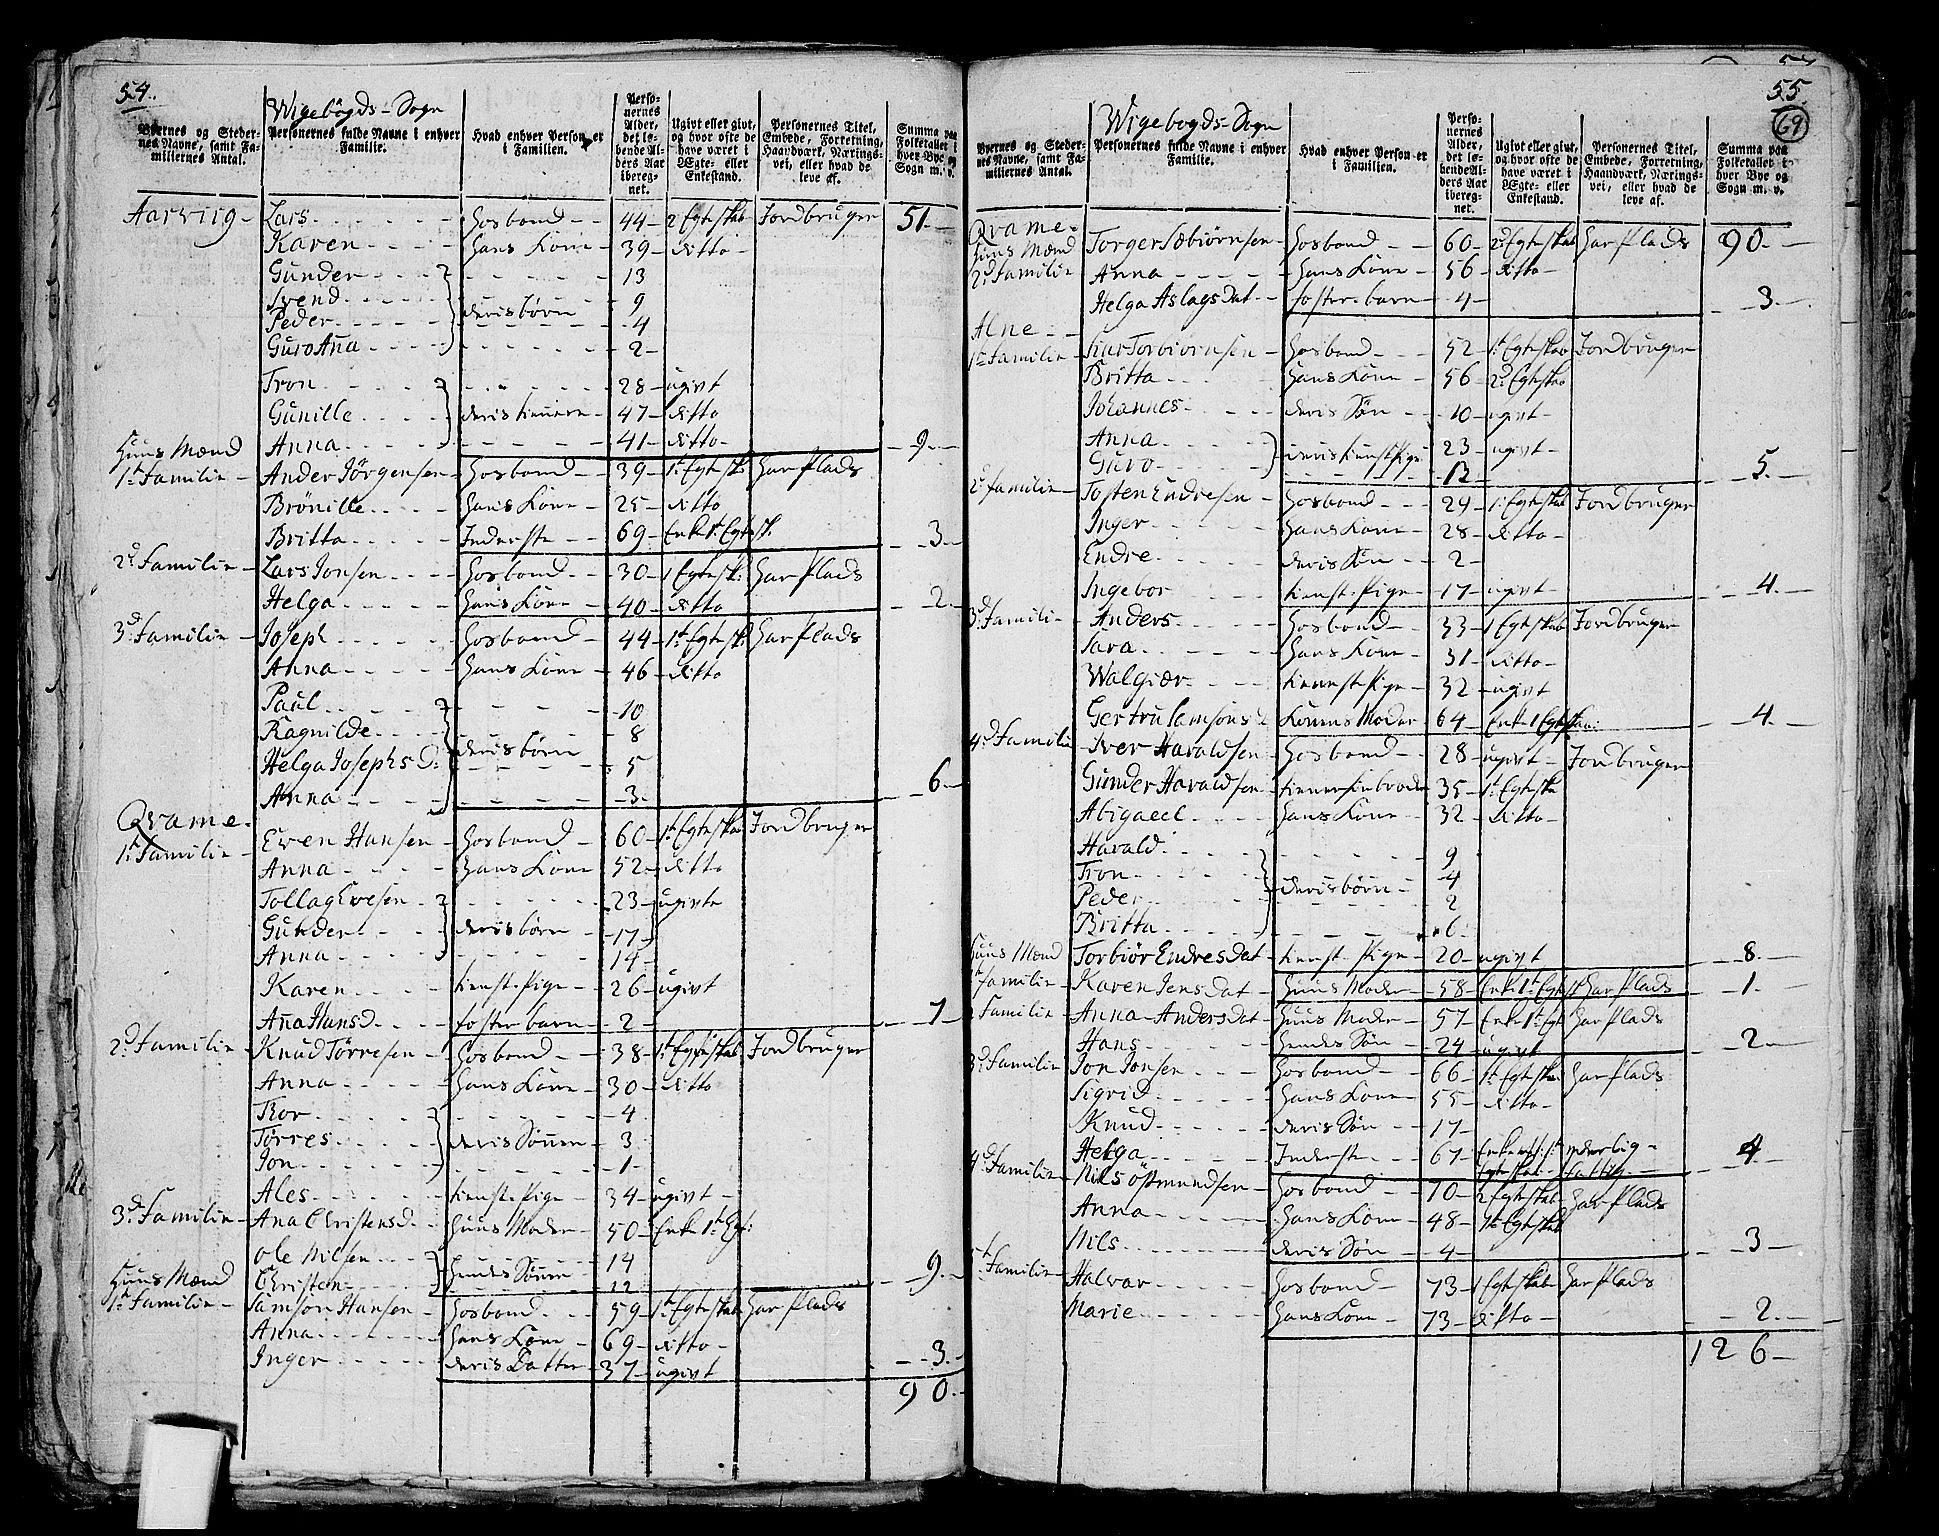 54.
Wigebögds-Sogn
Byernes og Steder-
nes Navne, samt Fa-
miliernes Antal.
Personernes fulde Navne i enhver
Familie.
Hvad enhver Person er
i Familien.
Perso-
nernes
Alder,
det lø-
bende Al-
ders Aar
ibereg-
net.
Ugivt eller givt,
og hvor ofte de
have været i
Ægte- eller
Enkestand.
Personernes Titel,
Embede, Forretning,
Haandværk, Nærings-
vei, eller hvad de
leve af.
Summa paa
Folketallet i
hver Bye og
Sogn m. v.
Aarwiig - Lars - Hosbond - 44 - 2 Egteskab Jordbruger 51
Karen - Hans Kone - 39 - ditto
Gunder - 13
Svend - 9
Peder - deris børn - 4
Guro Ana - 2
Tron - 28 - ugivt
Gunille - deris tienere - 47 - ditto
Anna - 41 - ditto - 9
Huus Mænd
1te Familie - Ander Jörgensen - Hosbond - 39 - 1te Egtesk: Har Plads
Brönille - Hans Kone - 25 - ditto
Britta - Inderste - 69 - Enke 1te Egtesk. - 3
2de Familie - Lars Jonsen - Hosbond - 30 - 1 Egtesk: Har Plads
Helga - Hans Kone - 40 - ditto - 2
3de Familie - Joseph - Hosbond - 44 - 1te Egtesk: Har Plads
Anna - Hans Kone - 46 - ditto
Paul - 10
Ragnilde - 8
Helga Josephs D: - deris børn - 5
Anna - 3 - 6
Qvame
1te Familie - Ewen Hansen - Hosbond - 60 - 1te Egteskab Jordbruger
Anna - Hans Kone - 52 - ditto
Tollag Evesen - 23 - ugivte
Gunder - deris börn - 17
Anna - 14
Karen - tienste Pige - 26 - ugivt
Aña Hansd - foster barn - 2 - 7
2de Familie - Knud Törresen - Hosbond - 38 - 1te Egteskab Jordbruger
Anna - Hans Kone - 30 - ditto
Thor - 4
Tørres - deris Sönner - 3
Jon - 1
Ales - tienste Pige - 34 - ugivt
3de Familie - Ana Christensd - Huus Moder - 50 - Enke 1te Egt:
Ole Nilsen - 14
Christen - Hendes Sönner - 12 - 9
Huus Mænd
1te Familie - Samson Hansen - Hosbond - 59 - 1te Egteskab Har Plads
Anna - Hans Kone - 69 - ditto
Inger - deris Datter - 37 - ugivt - 3
90
55.
69
Wigebogds-Sogn
Byernes og Steder-
nes Navne, samt Fa-
miliernes Antal.
Personernes fulde Navne i enhver
Familie.
Hvad enhver Person er
i Familien.
Perso-
nernes
Alder,
det lø-
bende Al-
ders Aar
ibereg-
net.
Ugivt eller givt,
og hvor ofte de
have været i
Ægte- eller
Enkestand.
Personernes Titel,
Embede, Forretning,
Haandværk, Nærings-
vei, eller hvad de
leve af.
Summa paa
Folketallet i
hver Bye og
Sogn m. v.
Qvame
Huus Mænd Torger Sæbiörnsen - Hosbond - 60 - 2de Egteskab Har Plads 90
2de Familie Anna - Hans Kone - 56 - ditto
Helga Aslags Dat - foster barn - 4 - 3
Alne
1te Familie - Siur Torbiornsen - Hosbond - 52 - 1te Egteskab Jordbruger
Britta - Hans Kone - 56 - 2de Egteskab
Johannes - deris Sön - 10 - ugivt
Anna - deris tienst Pige - 23 - ugivt
Guro - 12 - 5
2de familie - Tosten Endresen - Hosbond - 24 - 1 Egteskab Jordbruger
Inger - Hans Kone - 28 - ditto
Endre - deris Sön - 2
Ingebor - tienst Pige - 17 - ugivt - 4
3de Familie - Anders - Hosbond - 33 - 1 Egteskab Jordbruger
Sara - Hans Kone - 31 - ditto
Walgiær - tienest Pige - 32 - ugivt
Gertru Samsons - Konens Moder - 64 - Enke 1 Egteskab: - 4
4de Familie - Iver Haraldsen - Hosbond - 28 - ugivt - Jordbruger
Gunder Haraldsen - 35 - 1te Egteska
Abigaeel - Hans Kone - 32 - ditto
Harald - 9
Tron - 4
Peder - deris börn - 2
Britta - 6
Torbiör Endres Dat - tienst Pige - 20 - ugivt - 8
Huus Mænd
1te familie - Karen Jens Dat - Huus Moder - 58 - Enke 1te Egtesk Har Plads - 1
2 Familie - Anna Anders Dat - Huus Moder - 57 - Enke 1te Egt Har Plads
Hans - Hendes Sön - 24 - ugivt - 2
3de Familie - Jon Jonsen - Hosbond - 66 - 1te Egteska Har Plads
Sigrid - Hans Kone - 55 - ditto
Knud - deris Sön - 17
Helga - Inderste - 67 - 4
4de Familie - Nils Östmundsen - Hosbond - 70 - 2 Egteskab Har Plads
Anna - Hans Kone - 48 - 1te Egteskab
Nils - deris Sön - 4 - 3
5te Familie - Halvar - Hosbond - 73 - 1 Egteskab Har Plads
Marie - Hans Kone - 73 - ditto - 2
126